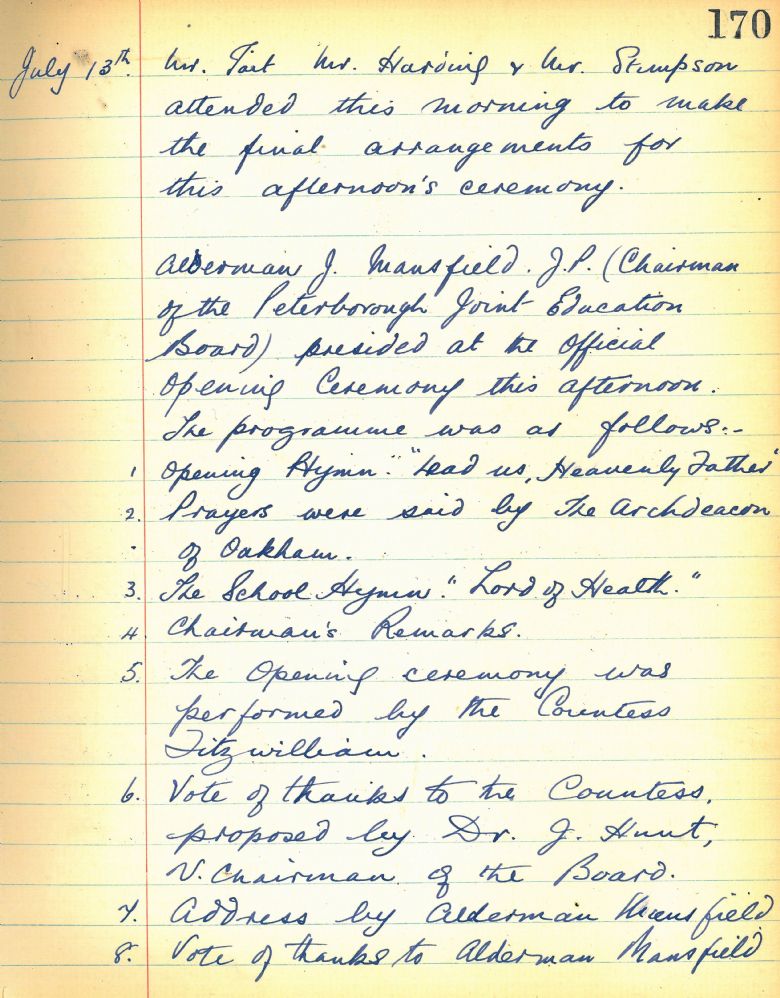 170
July 13th. Mr. Tait Mr. Harding & Mr. Stimpson
attended this morning to make
the final arrangements for
this afternoon's ceremony.
Alderman J. Mansfield. J.P. (Chairman
of the Peterborough Joint Education
Board) presided at the Official
Opening Ceremony this afternoon.
The programme was as follows:-
1 Opening Hymn. "Lead us, Heavenly Father"
2. Prayers were said by The Archdeacon
of Oakham.
3. The School Hymn. "Lord of Health."
4. Chairman's Remarks.
5. The Opening ceremony was
performed by the Countess
Fitzwilliam.
6. Vote of thanks to the Countess,
proposed by Dr. J. Hunt,
V. Chairman of the Board.
7. Address by Alderman Mansfield
8. Vote of thanks to Alderman Mansfield